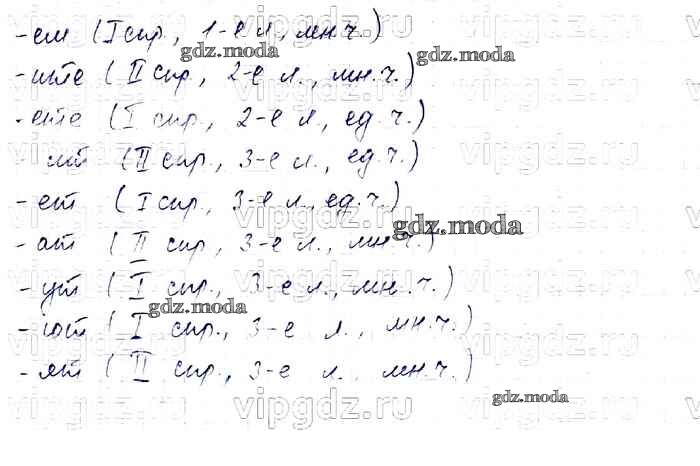 -ем (I спр., 1-е л., мн.ч.)
-ите (II спр., 2-е л., мн.ч.)
-ете (I спр., 2-е л., ед.ч.)
ит (II спр., 3-е л., ед.ч.)
-ет (I спр., 3-е л., ед.ч.)
-ат (II спр., 3-е л., мн.ч.)
-ут (I спр., 3-е л., мн.ч.)
-ют (I спр., 3-е л., мн.ч.)
-ят (II спр., 3-е л., мн.ч.)
gdz.moda
gdz.moda
gdz.moda
gdz.moda
gdz.moda
vipgdz.ru